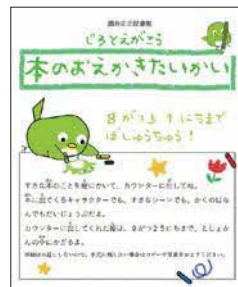 じろとえがこう
本のおえかきたいかい
8がつ31にちまで
ぼしゅうちゅう！
すきな本のことを絵にかいて、カウンターに出してね。
本に出てくるキャラクターでも、すきなシーンでも、かくのはな
んでもだいじょうぶだよ。
カウンターに出してくれた絵は、9がつ2うにちまで、としょか
んの中にかざるよ。